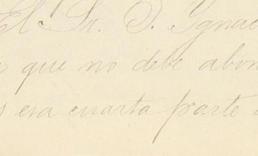 El Sr. D. Ygnac
que no debe abon
s esa cuarta parte